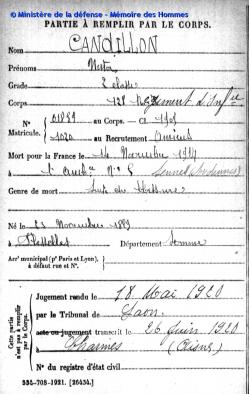 © Ministère de la défense - Mémoire des Hommes
PARTIE À REMPLIR PAR LE CORPS.
Nom CANDILLON
Prénoms
Grade 2e classe
Corps 128 Régiment d'Infie
N° 01889 au Corps. — Cl.
Matricule. 1020 au Recrutement Amiens
Mort pour la France le 14 Novembre
à
Genre de mort Suite de blessures
Né le 23 Novembre 1889
à Département Somme
Arrt municipal (pr Paris et Lyon),
à défaut rue et N°.
Cette partie
n'est pas à remplir
par le Corps.
Jugement rendu le 18 Mai 1920
par le Tribunal de Laon
acte ou jugement transcrit le 26 Juin 1920
à Charmes (Aisne)
N° du registre d'état civil
534-708-1921. [26434.]